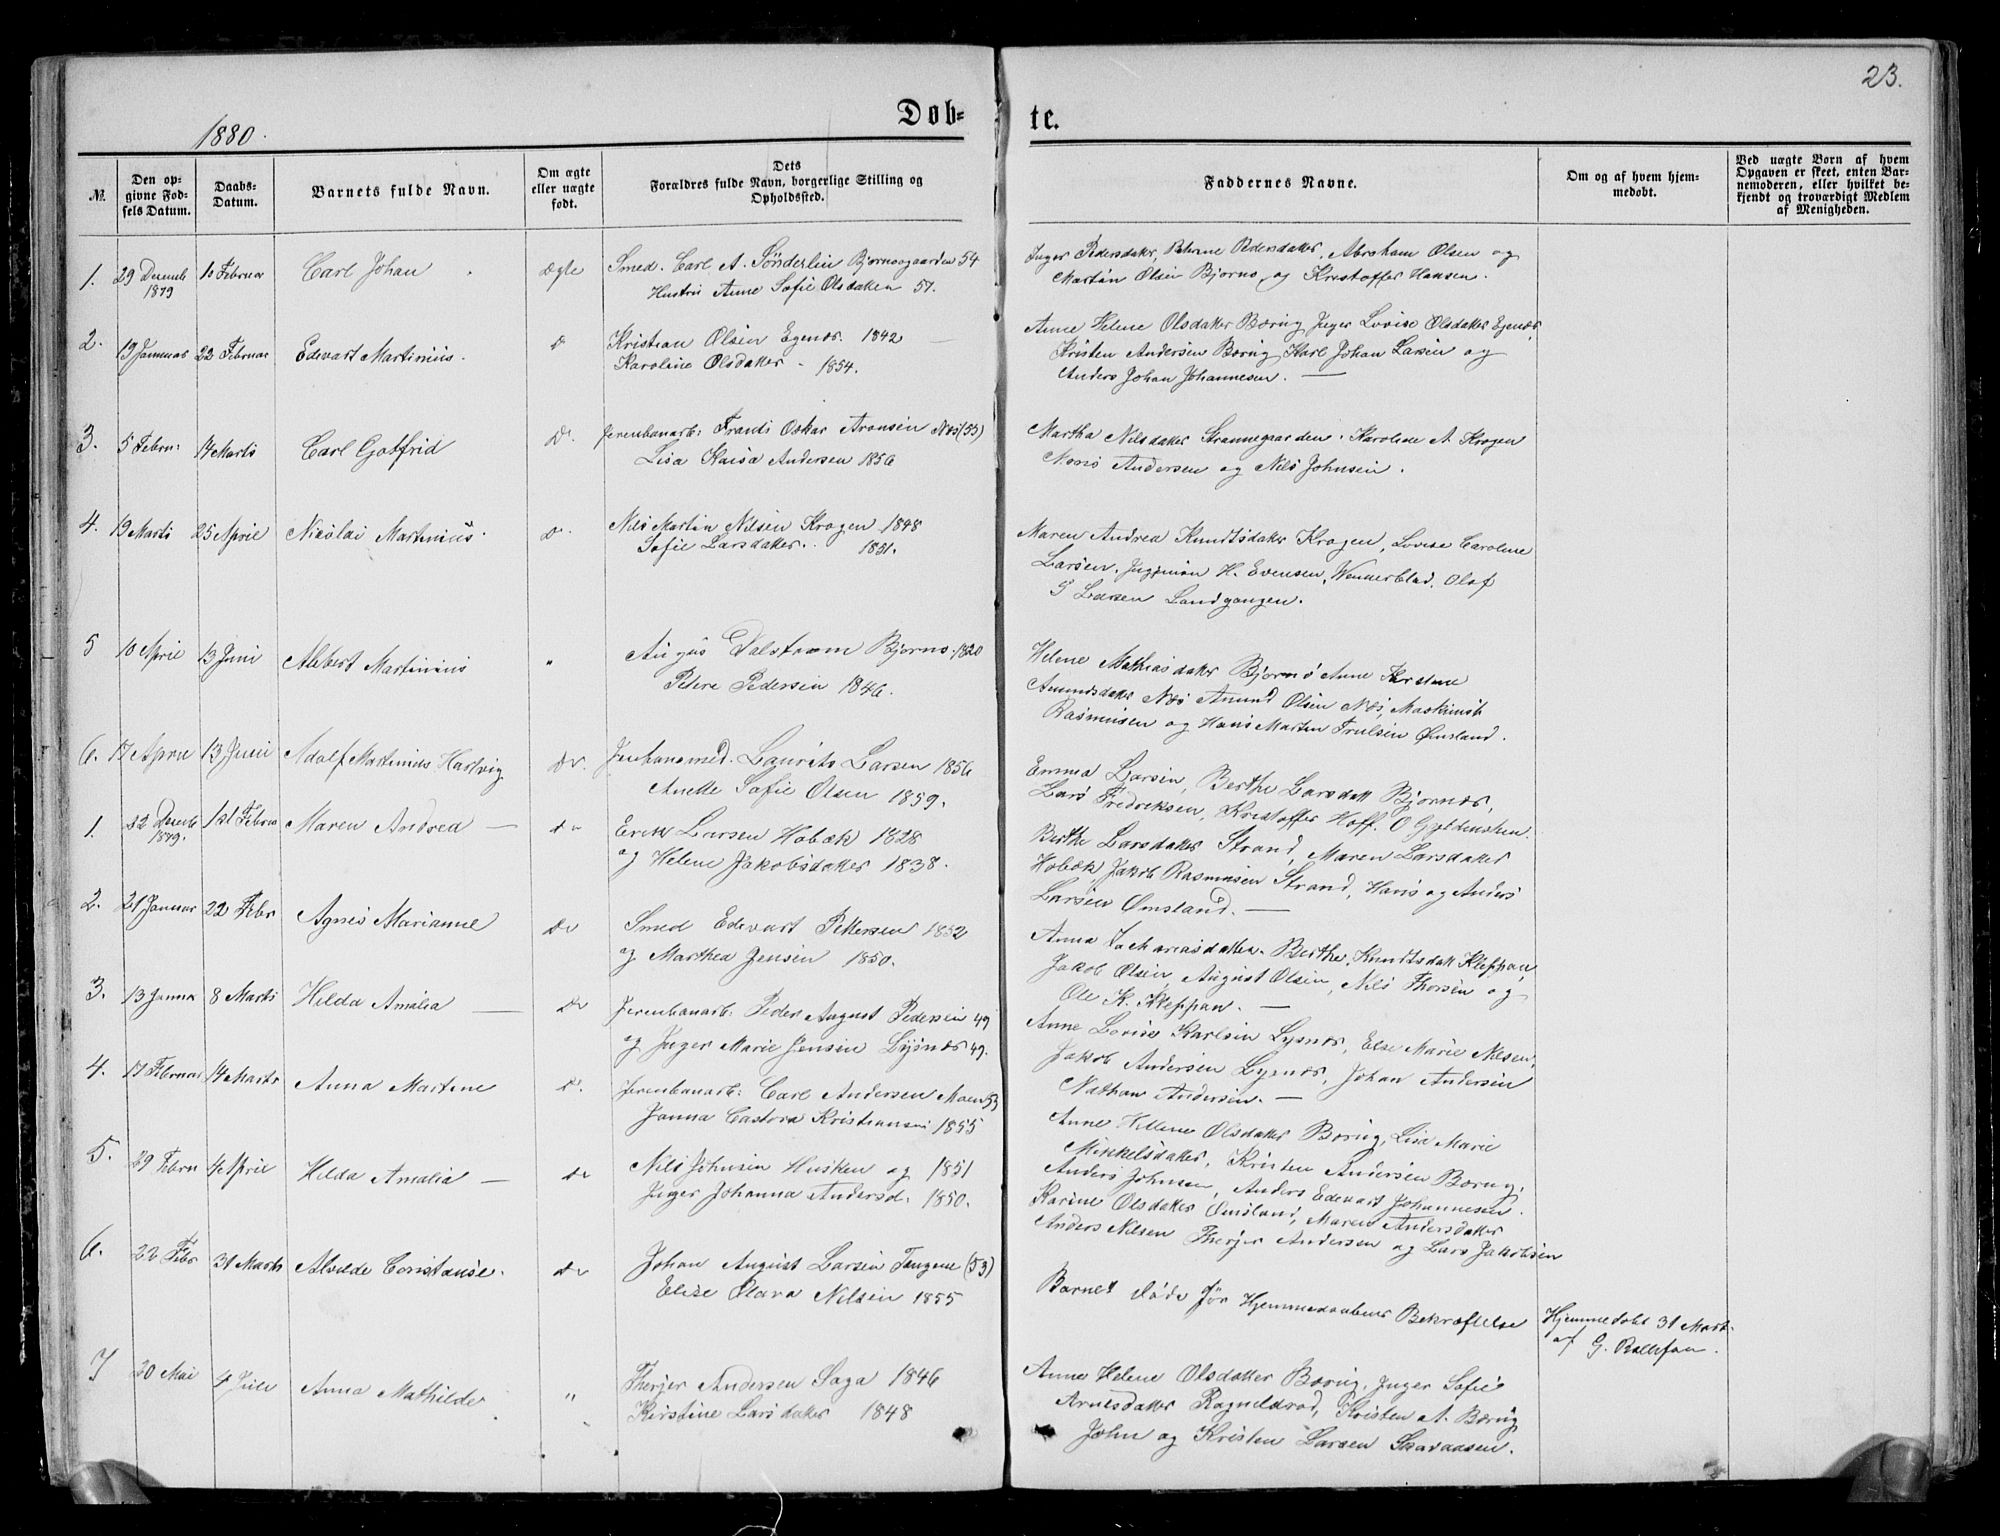 23.
1880.
Døb-
te.
№.
Den op-
givne Fød-
sels Datum.
Daabs-
Datum.
Barnets fulde Navn.
Om ægte
eller uægte
født.
Dets
Forældres fulde Navn, borgerlige Stilling og
Opholdssted.
Faddernes Navne.
Om og af hvem hjem-
medøbt.
Ved uægte Børn af hvem
Opgaven er skeet, enten Bar-
nemoderen, eller hvilket be-
kjendt og troværdigt Medlem
af Menigheden.
1. 29 Decemb 1 Februar Carl Johan Ægte Smed. Carl A. Sönderlin Bjørnsgaarden 54
1879
Hustru Anne Sofie Olsdatter 57.
Inger Pedersdatter, Petrine Pedersdatter, Abraham Olsen og
Martin Olsen Bjørnø, og Kristoffer Hansen.
2. 19 Januar 22 Februar Edevart Martinius. D Kristian Olsen Egenæs. 1842
Karoline Olsdatter - 1854.
Anne Helene Olsdatter Børug Inger Lovise Olsdatter Egenæs,
Kristen Andersen Børug, Karl Johan Larsen og
Anders Johan Johannesen. —
3. 5 Febru: 14 Marts Carl Gotfrid Do. Jernbanarb: Frands Oskar Aronsen Næs (55)
Lisa Kaisa Andersen 1856
Martha Nilsdatter Strannegaarden. Karoline A. Krogen
Andersen og Nils Johnsen.
4. 19 Marts 25 April Nikolai Martinius. D. Nils Martin Nilsen Krogen 1848
Sofie Larsdatter. 1851.
Maren Andrea Knudtsdatter Krogen, Lovise Caroline
Larsen, H. Evensen, Wennerblad. Olaf
Larsen Landgangen.
5 10 April 13 Juni Albert Martinius " Augus Dalstrøm Bjørnø. 1820
Petere Pedersen 1846.
Helene Mathiasdatter Bjørnø Anne Kirstine
Amundsdatter Næs Amund Olsen Næs, Maskinist
Rasmusen og Hans Martin Trulsen Ømsland.
6. 17 April 13 Juni Adolf Martinius Hartvig Do. Jernbanesmed. Laurits Larsen 1856
Anette Sofie Olsen 1859.
Emma Larsen, Berthe Larsdatt Bjørnæs,
Lars Fredriksen, Kristoffer Hoff. O Gyldensten.
1. 22 Decemb 1 Februa Maren Andrea — do Erik Larsen Hobæk 1828
1879.
og Helene Jakobsdatter 1838.
Berthe Larsdatter Strand, Maren Larsdatter
Hobæk, Jakob Rasmusen Strand, Hans og Anders
Larsen Ømsland. —
2. 21 Januar 22 Febr Agnes Marianne Do Smed Edevart Pettersen 1852
og Marthea Jensen 1850.
Anna Zachariasdatter. Berthe Knudtsdatt Kleppan,
Jakob Olsen, August Olsen, Nils Thorsen og
Ole K. Kleppan. —
3. 13 Janua 8 Marts Hilda Amalia — Do Jernbanarb: Peder August Pedersen 49
og Inger Marie Jensen Lysnæs 49.
Anne Lovise Karlsen Lysnæs, Else Marie Nilsen,
Jakob Andersen Lysnæs, Johan Andersen
Nathan Andersen. —
4. 17 Februar 14 Marts Anna Martine D. Jernbanarb: Carl Andersen Moen 53
Janna Castora Kristiansen 1855
Anne Helene Olsdatter Børug, Lise Marie
Mikkelsdatter, Kristen Andersen Børug,
Anders Johnsen, Anders Edevart Johannesen.
5. 29 Febru 4 April Hilda Amalia — do Nils Johnsen Husken og 1851
Inger Johanna Andersd: 1850.
Karine Olsdatter Ømsland, Maren Andersdatter
Anders Nilsen Therjer Andersen og Lars Jakobsen
6. 22 Febr 31 Marts Alvilde Constanse. do Johan August Larsen Tangene (53)
Elise Clara Nilsen 1855
Barnet døde før Hjemmedaabens Bekræftelse
Hjemmedøbt 31 Mart.
af G.
7 20 Mai 4 Juli Anna Mathilde " Therjer Andersen Saga 1846
Kirstine Larsdatter 1848
Anne Helene Olsdatter Børug, Inger Sofie
Arnesdatter Ragneldrød, Kristen A. Børug,
John og Kristen Larsen Skavaasen.